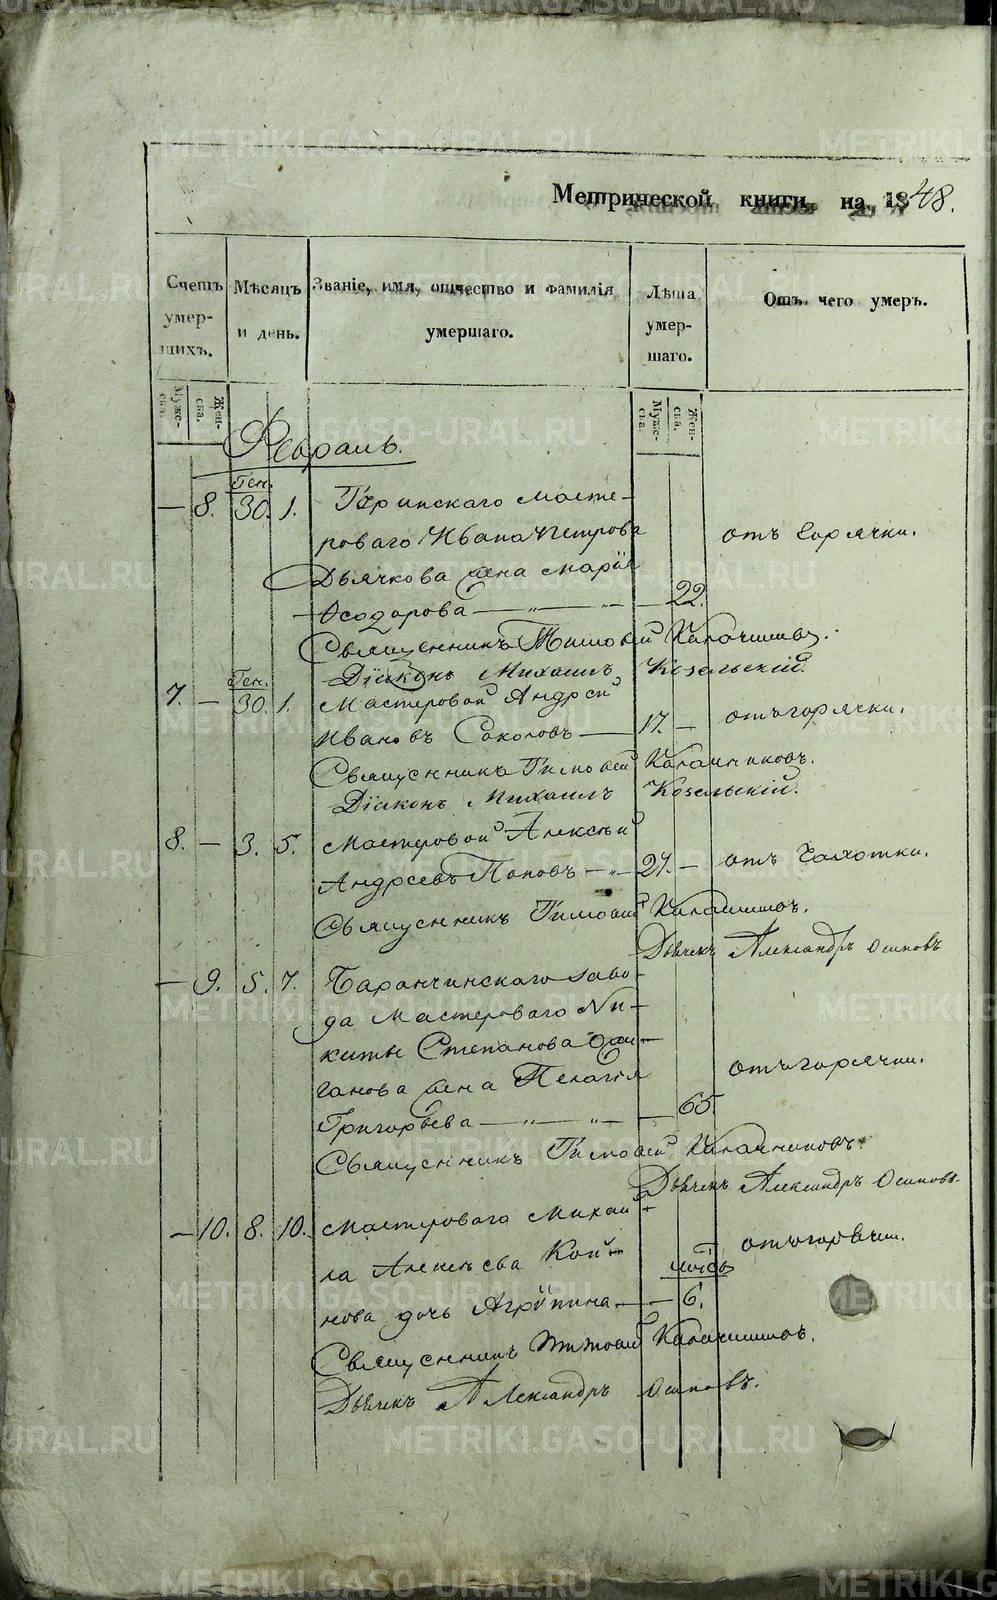 Метрической книги, на 1848.
Счетъ умер- шихъ.
Мѣсяцъ и день.
Званіе, имя, отчество и фамилія умершаго.
Лѣта умер- шаго.
Отъ чего умеръ.
Муже- ска.
Жен- ска.
Муже- ска.
Жен- ска.
Февраль.
Ген.
— 8. 30. 1. масте-
роваго Ивана Петрова отъ горячки.
Дьячкова жена Марія
Ѳеодорова — „ — „ — 22.
Священникъ Тимофей
Діаконъ Михаилъ Козельскій.
Ген.
7. — 30. 1. Мастеровой Андрей
Ивановъ Соколовъ — 17. — отъ горячки.
Священникъ Тимофей Калашниковъ.
Діаконъ Михаилъ Козельскій.
8. — 3. 5. Мастеровой Алексѣй
Андреевъ Поповъ — „ — 27. — отъ чахотки.
Священникъ Тимофей
Дьячекъ Александръ Осиповъ
— 9. 5. 7. Баранчинскаго заво-
да Мастероваго Ни-
киты Степанова
жена Пелагія отъ горячки.
Григорьева — „ — „ — 65.
Священникъ Тимофей Калашниковъ.
Дьячекъ Александръ Осиповъ.
— 10. 8. 10. Мастероваго Михаи-
ла Алексѣева отъ горячки.
мѣсѧ
нова дочь Агрипина — — 6.
Священникъ Тимофей
Дьячекъ Александръ Осиповъ.
METRIKI.GASO-URAL.RU